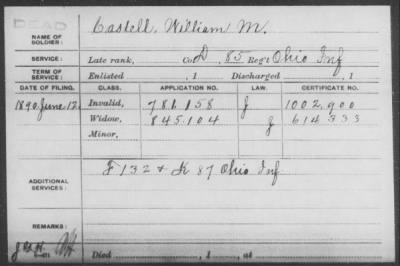 DEAD
NAME OF SOLDIER: Castell, William M.
SERVICE: Late rank, Co. D, 85 Reg't Ohio Inf
TERM OF SERVICE: Enlisted , 1 Discharged , 1
DATE OF FILING. CLASS. APPLICATION NO. LAW. CERTIFICATE NO.
1890 June 12 Invalid, 781.158 J 1002.900
Widow, 845.104 J 614333
Minor,
ADDITIONAL SERVICES: F 132 & K 87 Ohio Inf
REMARKS:
Died , 1 , at